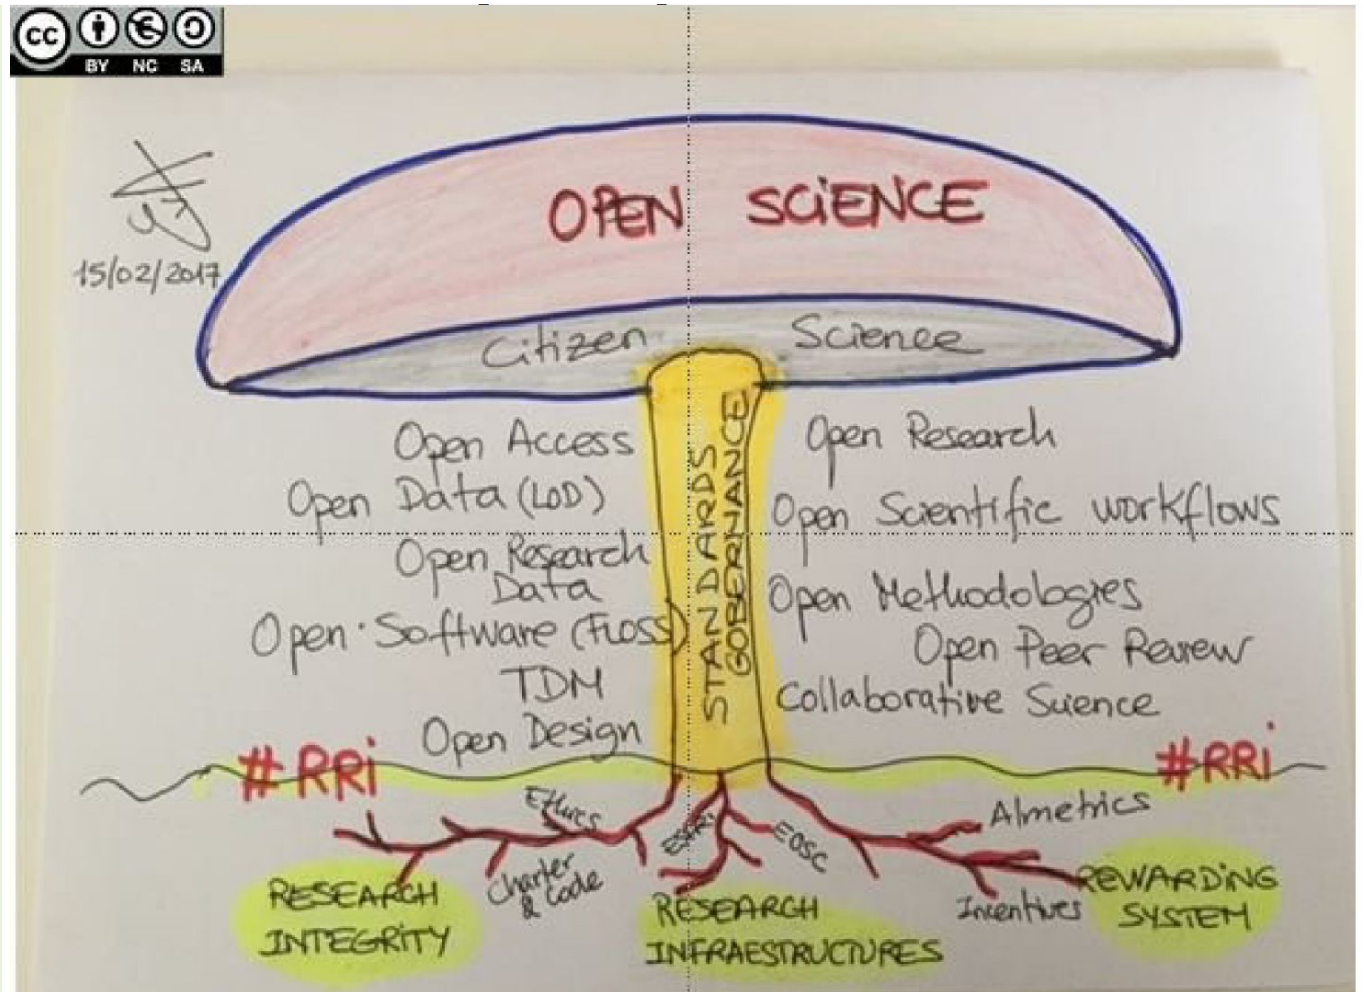 cc
BY NC SA
15/02/2017
OPEN SCiENCE
Citizen Science
Open Access
Open Data (LOD)
Open Research
Data
Open Software (FLOSS)
TDM
Open Design
STANDARDS
GOBERNANCE
Open Research
Open Scientific workflows
Open Methodologies
Open Peer Review
Collaborative Science
#RRi
#RRi
Ethics
Charter
& Code
ESFRi
EOSC
Almetrics
Incentives
RESEARCH
INTEGRITY
RESEARCH
INFRAESTRUCTURES
REWARDiNG
SYSTEM